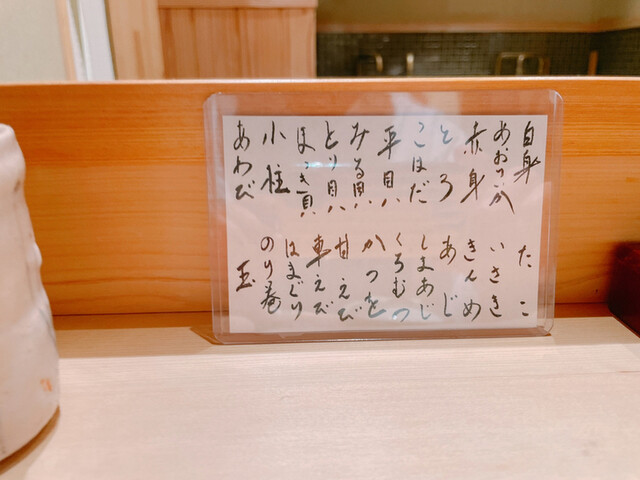 白身
あおりいか
赤身
とろ
こはだ
平貝
みる貝
とり貝
ほっき貝
小柱
あわび
たこ
いさき
きんめ
あじ
しまあじ
くろむつ
かつを
甘えび
車えび
はまぐり
のり巻
玉